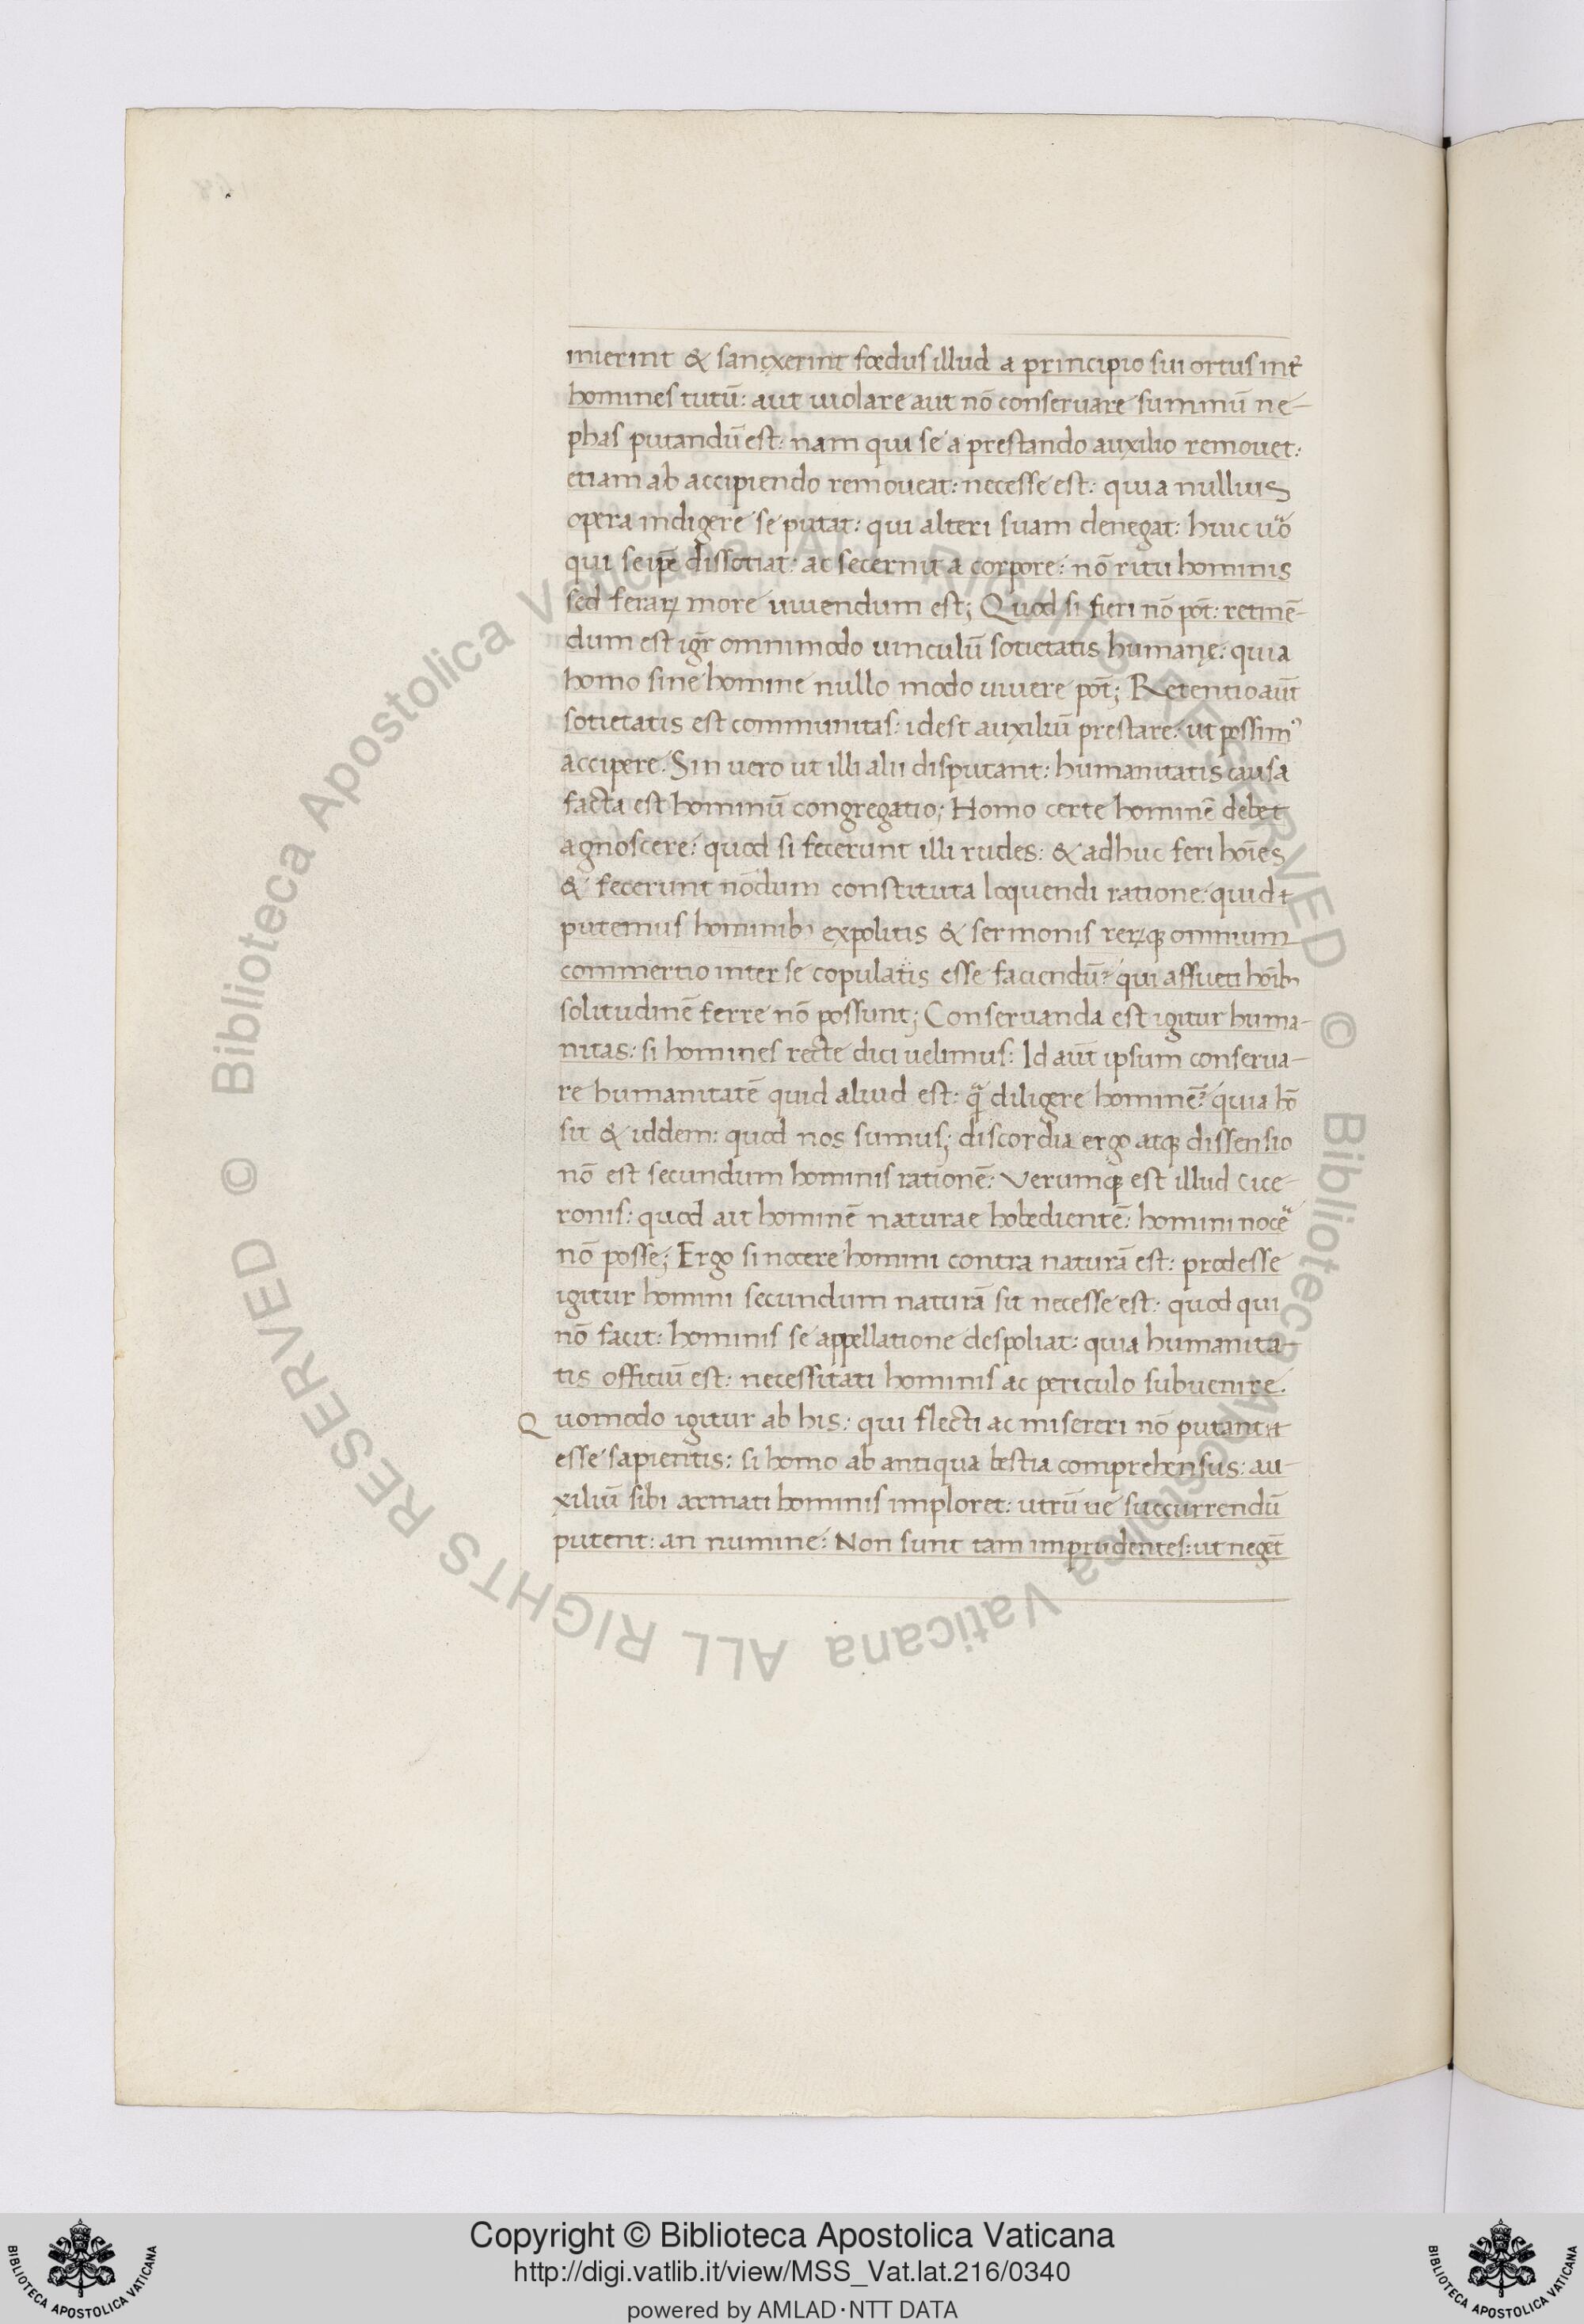 inierint & sançxerint fœdus illud a principio sui ortus int̃
homines tutū: aut uiolare aut nō conseruare summū ne-
phas putandū est: nam qui se a prestando auxilio remouet:
etiam ab accipiendo remoueat: necesse est: quia nullius
opera indigere se putat: qui alteri suam denegat: huic uo
qui seipē dissotiat: ac secernit a corpore: nō ritu hominis
sed ferarꝝ more uiuendum est; Quod si fieri nō pōt: retinē-
dum est igr̃ omnimodo uinculū sotietatis humanę: quia
homo sine homine nullo modo uiuere pōt; Retentio aūt
sotietatis est communitas: idest auxiliū prestare: ut possimꝰ
accipere. Sin uero ut illi alii disputant: humanitatis causa
facta est hominū congregatio; Homo certe hominē debet
agnoscere: quod si fecerunt illi rudes: & adhuc feri hoīes
& fecerunt nōdum constituta loquendi ratione: quid
putemus hominib; expolitis & sermonis rerꝝqꝫ omnium
commertio inter se copulatis esse faciendū? qui assueti hoīb;
solitudinē ferre nō possunt; Conseruanda est igitur huma-
nitas: si homines recte dici uelimus: Id aūt ipsum conserua-
re humanitatē quid aliud est: q̃ diligere hominē? quia hō
sit & iddem: quod nos sumus; discordia ergo atqꝫ dissensio
nō est secundum hominis rationē: Verumqꝫ est illud Cice-
ronis: quod ait hominē naturae hobedientē: homini nocē
nō posse; Ergo si nocere homini contra naturā est: prodesse
igitur homini secundum naturā sit necesse est: quod qui
nō facit: hominis se appellatione despoliat: quia humanita-
tis offitiū est: necessitati hominis ac periculo subuenire.
Quomodo igitur ab his: qui flecti ac misereri nō putant
esse sapientis: si homo ab antiqua bestia comprehensus: au-
xiliū sibi armati hominis imploret: utrū ue succurrendū
putent: an numine: Non sunt tam imprudentes: ut negēt
© Biblioteca Apostolica Vaticana ALL RIGHTS RESERVED © Biblioteca Apostolica Vaticana ALL RIGHTS RESERVED
Copyright © Biblioteca Apostolica Vaticana
http://digi.vatlib.it/view/MSS_Vat.lat.216/0340
powered by AMLAD·NTT DATA
BIBLIOTECA APOSTOLICA VATICANA
BIBLIOTECA APOSTOLICA VATICANA